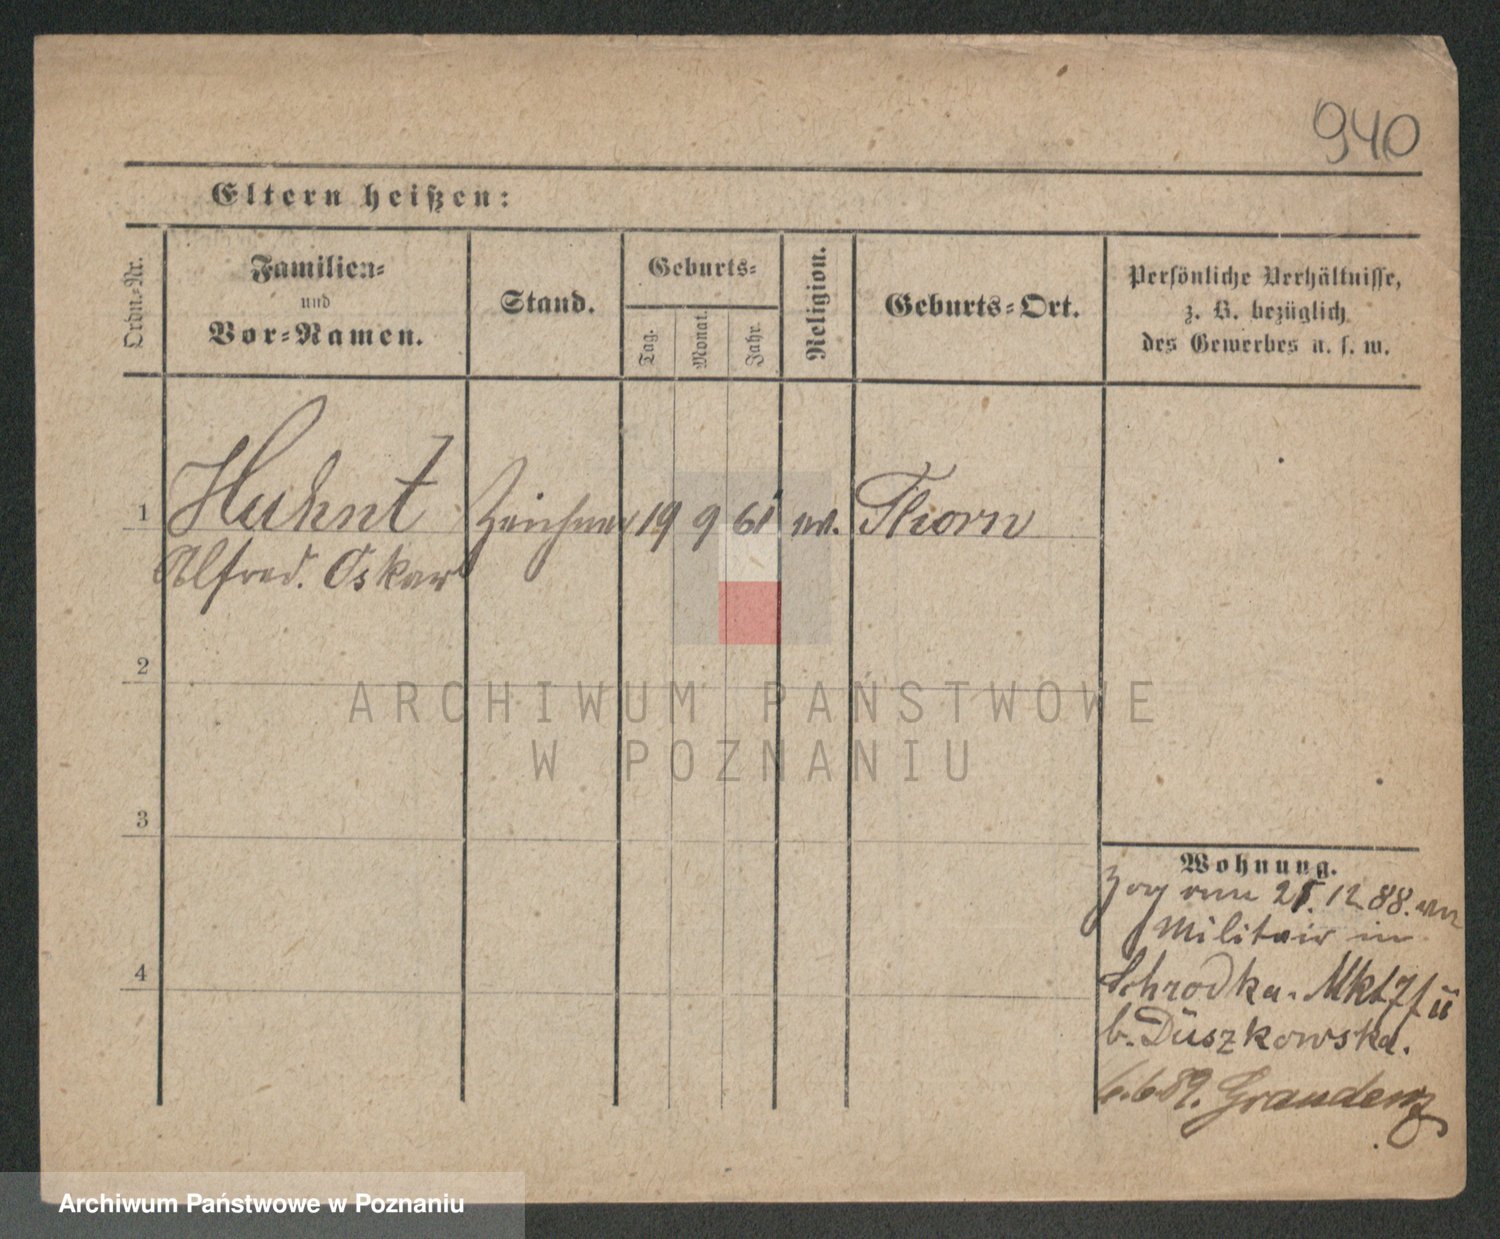 940
Eltern heißen:
Ordn.-Nr.
Familien-
und
Vor-Namen.
Stand.
Geburts-
Tag.
Monat.
Jahr.
Religion.
Geburts-Ort.
Persönliche Verhältnisse,
z. B. bezüglich
des Gewerbes u. s. w.
1 Huhnt Zeichner 19 9 61 ev. Thorn
Alfred. Oskar
2
3
4
Wohnung.
Zog am 12.88. vom
Militair in
Schrodka. Mkt 7
b. Düszkowska.
6.6 89. Graudenz
ARCHIWUM PAŃSTWOWE
W POZNANIU
Archiwum Państwowe w Poznaniu